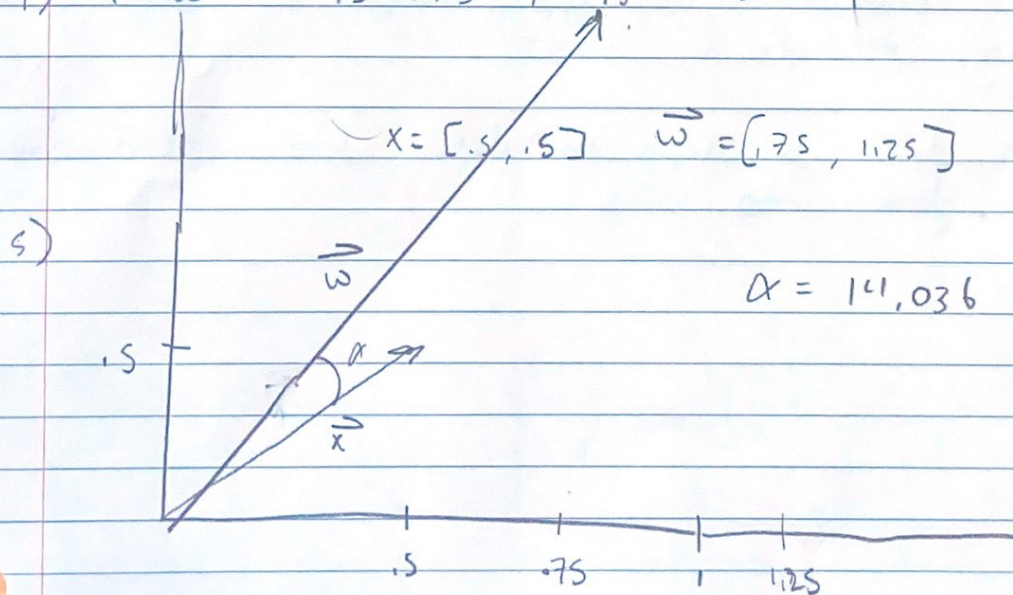 x = [.5, .5] w = [.75, 1.25]
5)
w
α = 14.036
.5
α
x
.5 .75 1 1.25